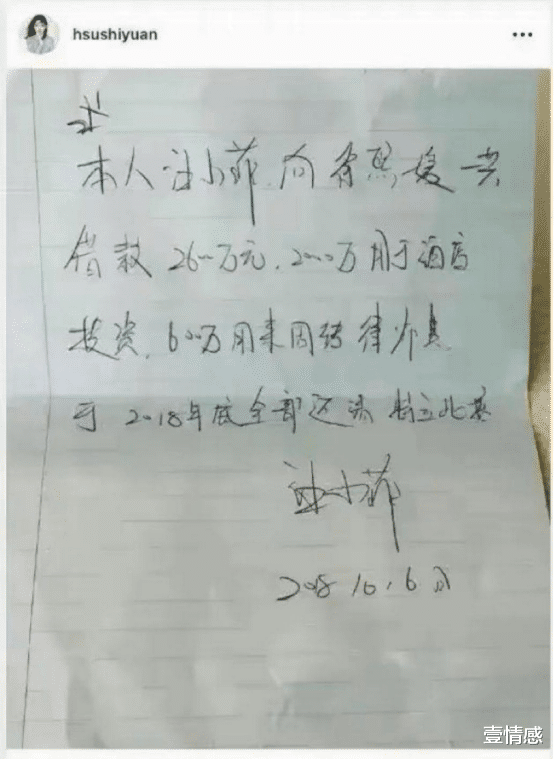 hsushiyuan
本人汪小菲,向徐熙媛共
借款2600万元,2000万用于酒店
投资,600万用来周转律师费.
于2018年底全部还清 特立此据
汪小菲
2018.10.6日
壹情感